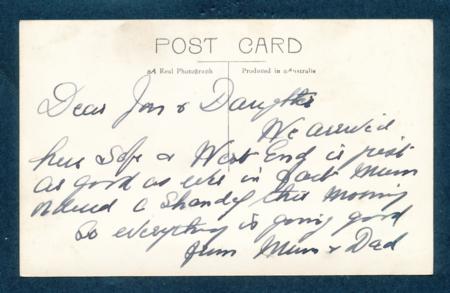 POST CARD
A Real Photograph
Produced in Australia
Dear Son & Daughter
We arrived
here Safe & West End is just
as good as ever in fact Mum
ordered a Shandy this morning
So everything is going good
from Mum & Dad